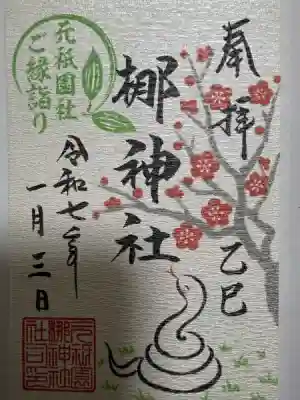 奉拝
乙巳
梛神社
元祇園社
ご縁詣り
令和七年
一月三日
元祇園
梛神社
社之印